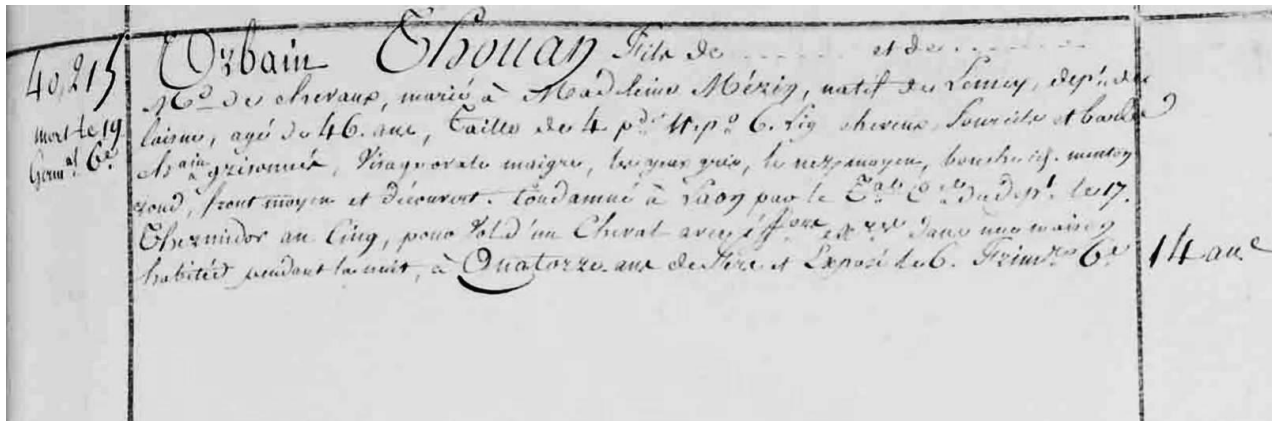 40,215
mort le 19
Germal 6e
Orbain Thouay Fils de ........ et de ........
Md de chevaux, marié à Madeleine Mézin, natif de Lemey, dept. de
laisne, agé de 46. ans, Taille de 4. pds 11. po 6. lig cheveux, Sourcils et barbe
chain grisonnés, Visage ovale maigre, les yeux gris, le nez moyen, bouche id. menton
rond, front moyen et découvert. Condamné à Laon par le Tal Cel du dept. le 17.
Thermidor an Cinq, pour Vol d'un Cheval avec effon et dans une maison
habitée pendant la nuit, à Quatorze ans de fers et Exposé le 6. Frimre 6e
14 ans